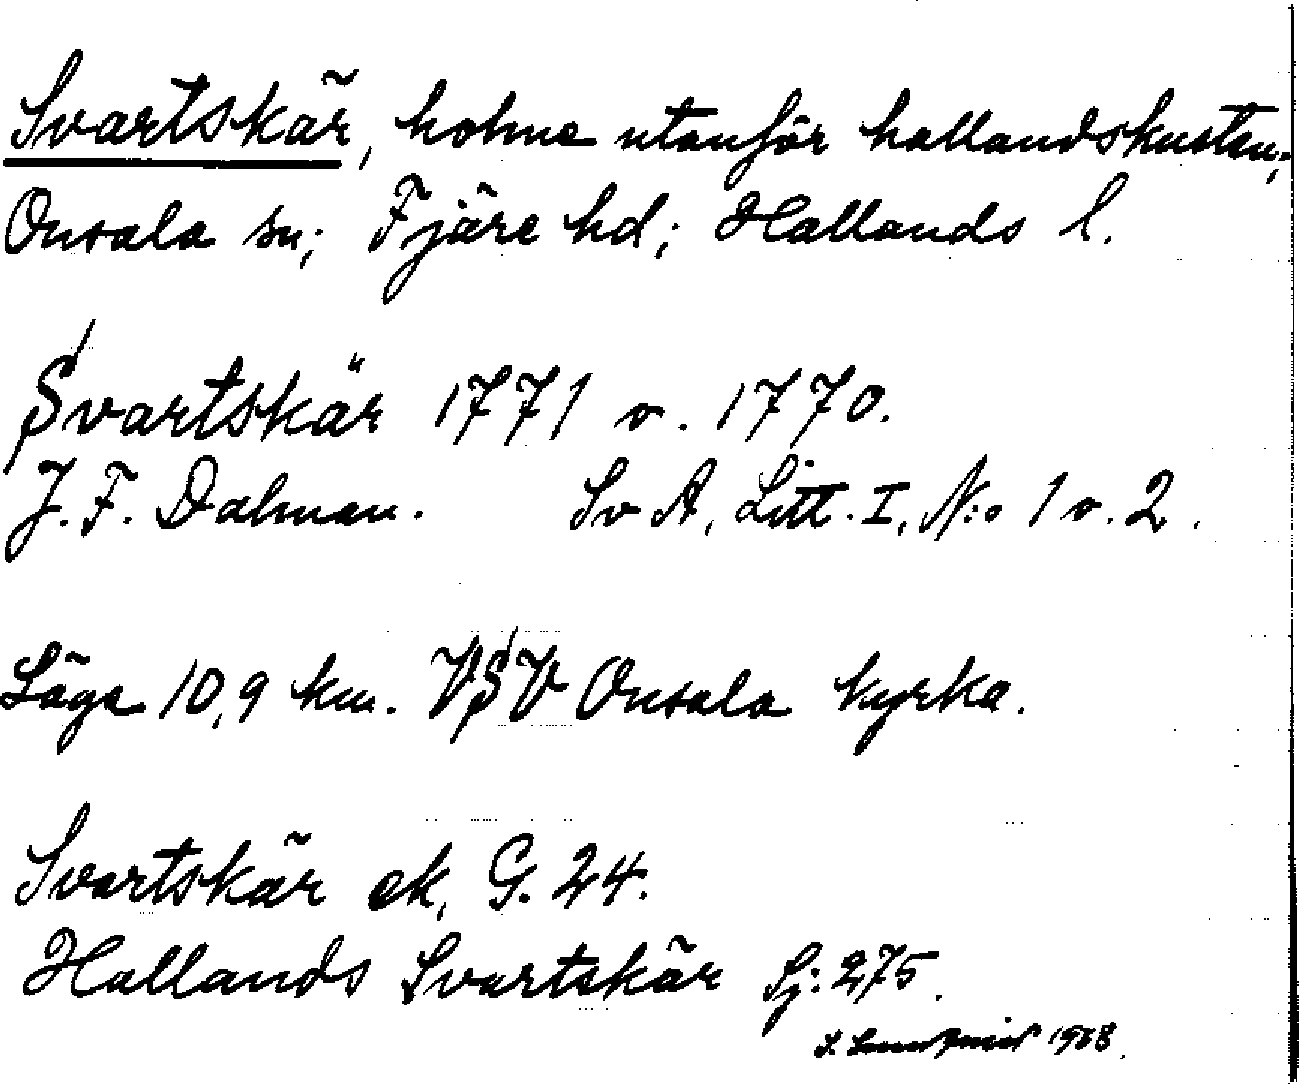 Svartskär, holme utanför hallandskusten;
Onsala sn; Fjäre hd; Hallands l.
Svartskär 1771 o. 1770.
J. F. Dalman. Sv A, Litt. I, N:o 1 o. 2.
Läge 10,9 km. VSV Onsala kyrka.
Svartskär ek, G. 24.
Hallands Svartskär Sj: 275.
1968